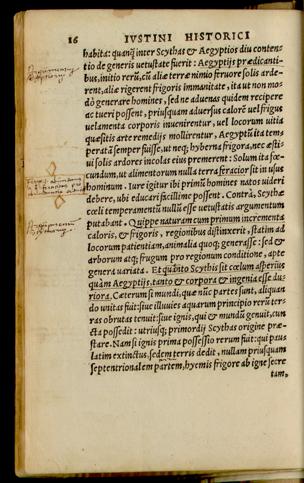 16 IVSTINI HISTORICI
habita: quanq̃ inter Scythas & Aegyptios diu conten-
tio de generis vetustate fuerit: Aegyptijs prædicanti-
bus, initio rerũ, cũ aliæ terræ nimio feruore solis arde-
rent, aliæ rigerent frigoris immanitate, ita ut non mo-
dò generare homines, sed ne aduenas quidem recipere
ac tueri possent, priusquam aduersus calorẽ uel frigus
uelamenta corporis inuenirentur, uel locorum uitia
quæsitis arte remedijs mollirentur, Aegyptũ ita tem-
peratã semper fuisse, ut neq; hyberna frigora, nec æsti-
ui solis ardores incolas eius premerent: Solum ita fœ-
cundum, ut alimentorum nulla terra feracior sit in usus
hominum. Iure igitur ibi primũ homines natos uideri
debere, ubi educari facillime possent. Contrà, Scythæ
cœli temperamentũ nullũ esse vetustatis argumentum
putabant. Quippe naturam cum primum incrementa
caloris, & frigoris, regionibus distinxerit, statim ad
locorum patientiam, animalia quoq; generasse: sed &
arborum atq; frugum pro regionum conditione, apte
genera uariata. Et quãnto Scythis sit cœlum asperius
quàm Aegyptijs, tanto & corpora & ingenia esse du-
riora. Cæterum si mundi, quæ nũc partes sunt, aliquan
do unitas fuit: siue illuuies aquarum principio rerũ ter-
ras obrutas tenuit: siue ignis, qui & mundũ genuit, cun
cta possedit: utriusq; primordij Scythas origine præ-
stare. Nam si ignis prima possessio rerum fuit: qui pau-
latim extinctus, sedem terris dedit, nullam priusquam
septentrionalem partem, hyemis frigore ab igne secre
tam,